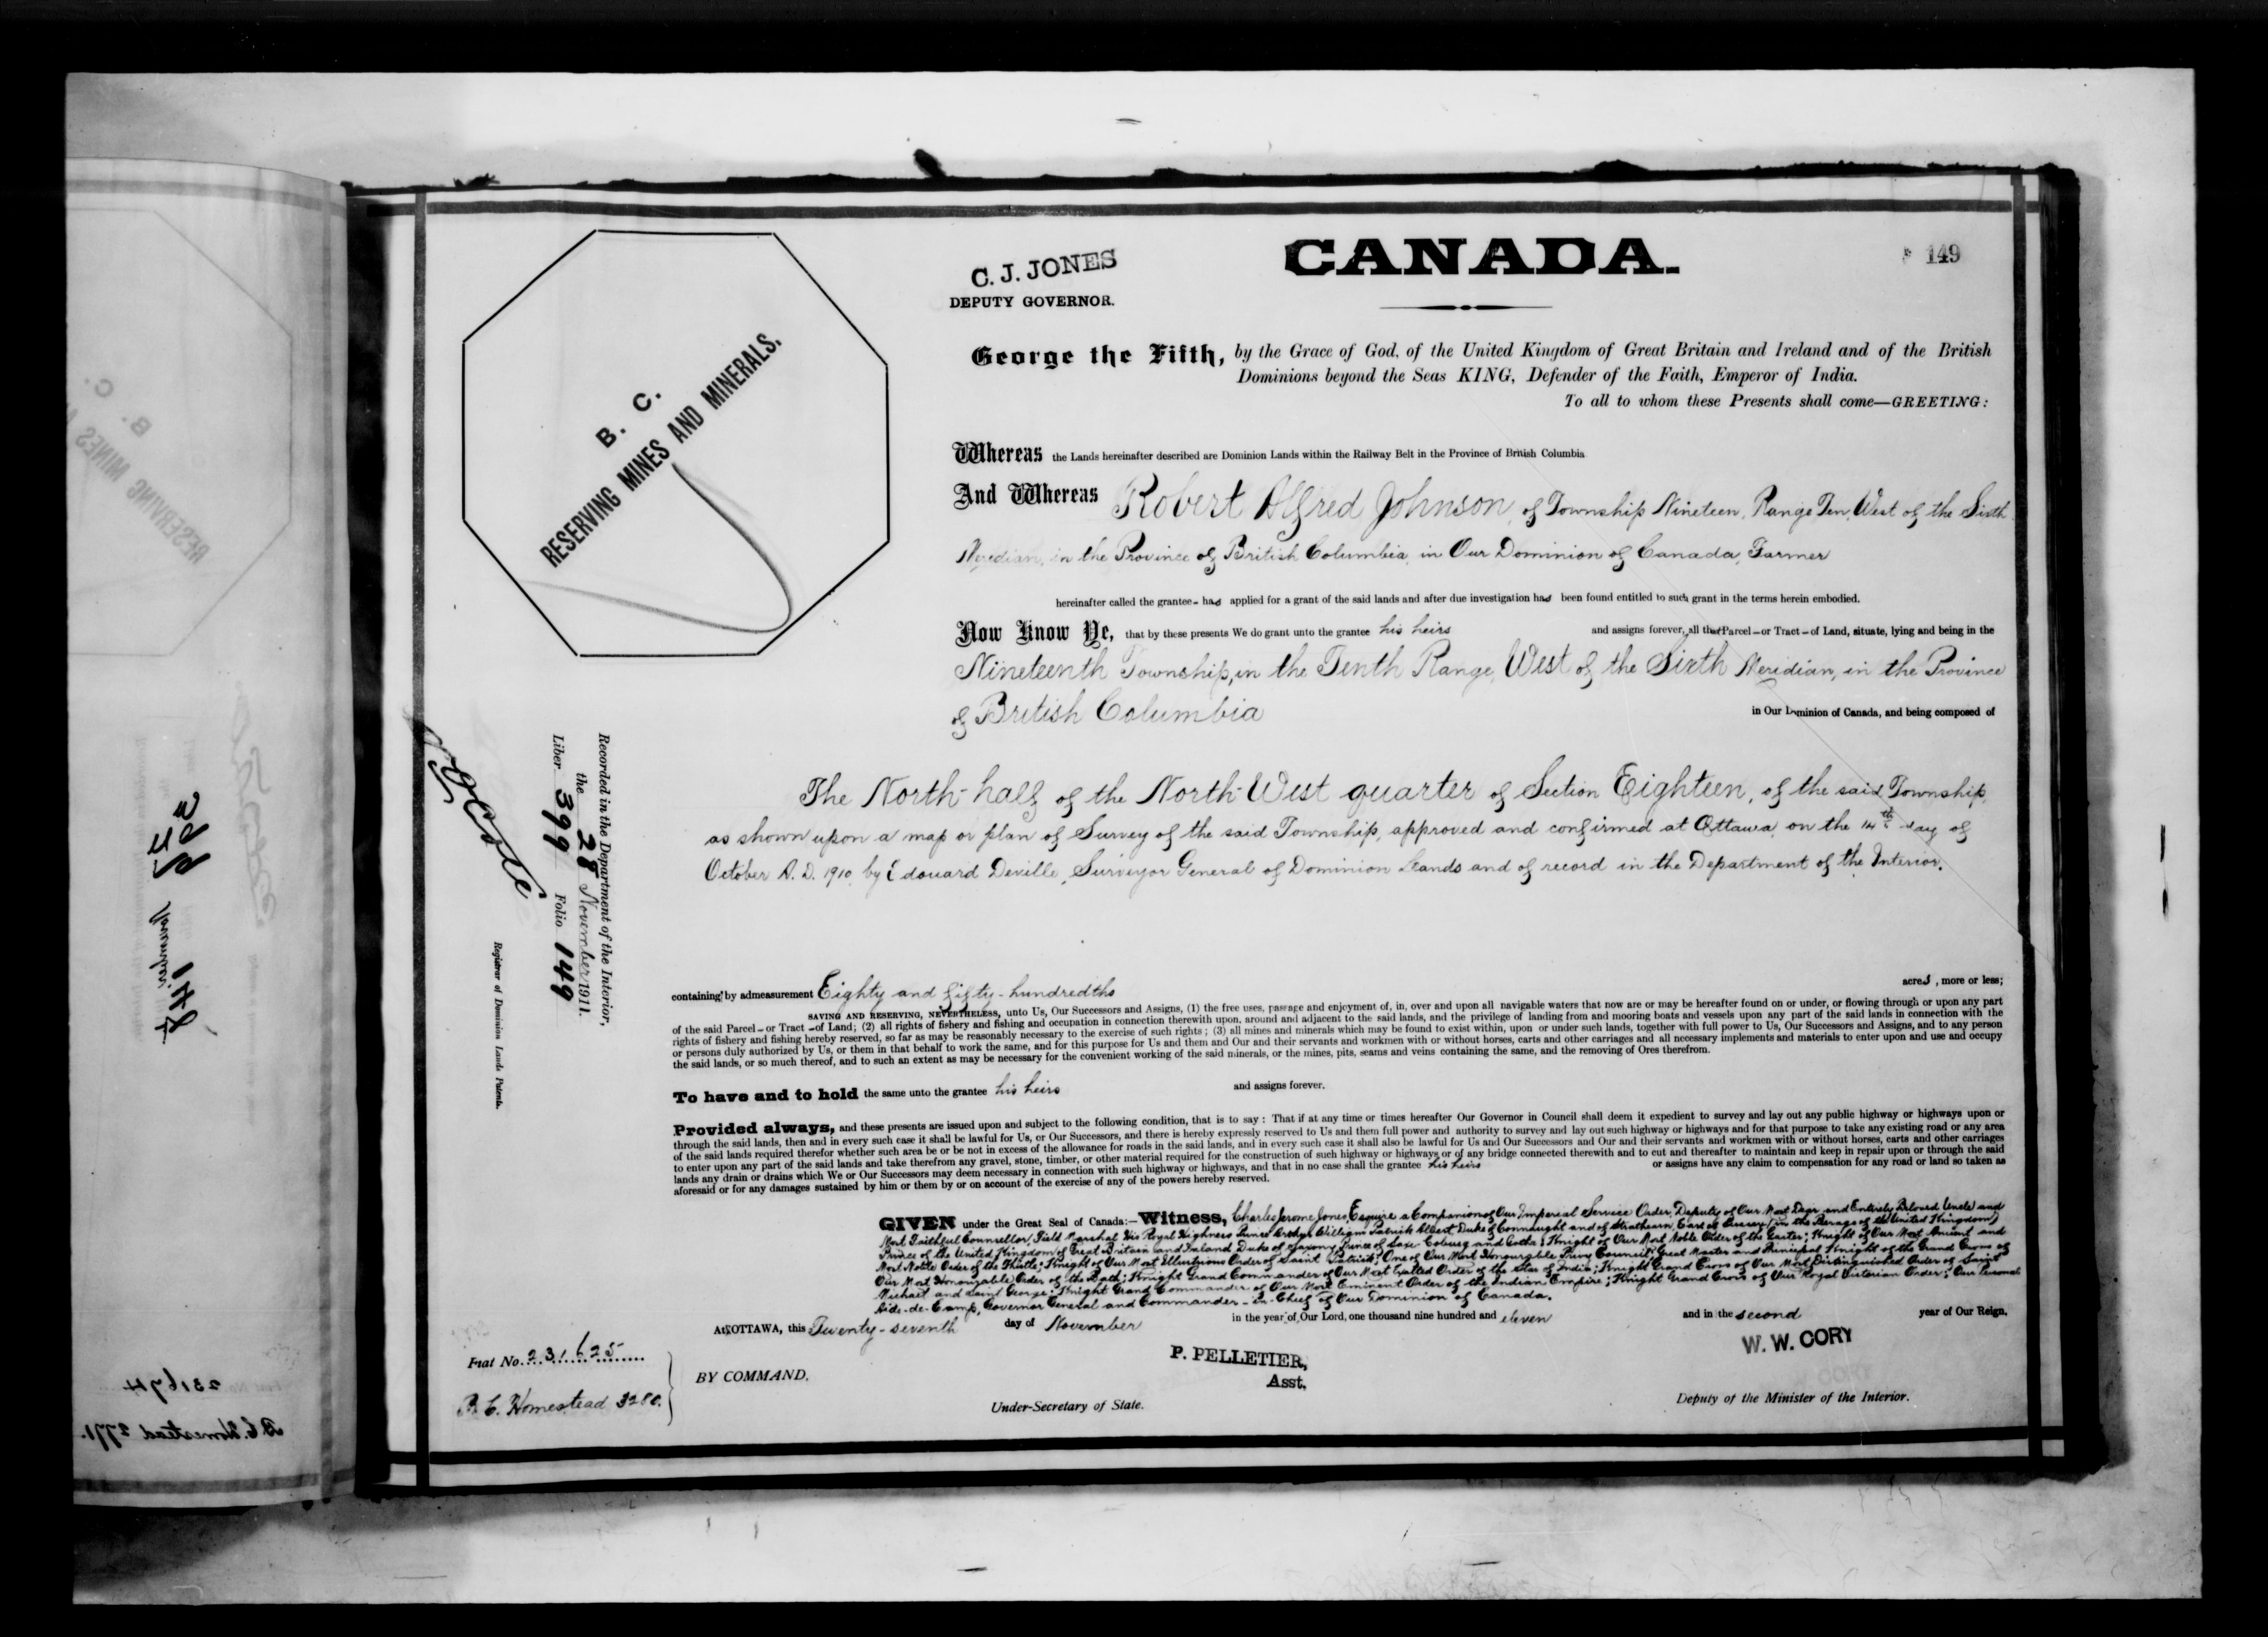 149
CANADA.
C. J. JONES
DEPUTY GOVERNOR.
B. C.
RESERVING MINES AND MINERALS.
George the Fifth, by the Grace of God, of the United Kingdom of Great Britain and Ireland and of the British
Dominions beyond the Seas KING, Defender of the Faith, Emperor of India.
To all to whom these Presents shall come—GREETING:
Whereas the Lands hereinafter described are Dominion Lands within the Railway Belt in the Province of British Columbia
And Whereas Robert Alfred Johnson, of Township Nineteen, Range Ten, West of the Sixth
Meridian, in the Province of British Columbia, in Our Dominion of Canada, Farmer
hereinafter called the grantee- has applied for a grant of the said lands and after due investigation has been found entitled to such grant in the terms herein embodied.
Now Know Ye, that by these presents We do grant unto the grantee his heirs and assigns forever, all that Parcel - or Tract - of Land, situate, lying and being in the
Nineteenth Township, in the Tenth Range, West of the Sixth Meridian, in the Province
of British Columbia in Our Dominion of Canada, and being composed of
The North-half of the North-West quarter of Section Eighteen, of the said Township,
as shown upon a map or plan of Survey of the said Township, approved and confirmed at Ottawa, on the 14th day of
October A. D. 1910, by Edouard Deville, Surveyor General of Dominion Lands and of record in the Department of the Interior.
containing by admeasurement Eighty and fifty-hundredths acres, more or less;
SAVING AND RESERVING, NEVERTHELESS, unto Us, Our Successors and Assigns, (1) the free uses, passage and enjoyment of, in, over and upon all navigable waters that now are or may be hereafter found on or under, or flowing through or upon any part
of the said Parcel - or Tract - of Land; (2) all rights of fishery and fishing and occupation in connection therewith upon, around and adjacent to the said lands, and the privilege of landing from and mooring boats and vessels upon any part of the said lands in connection with the
rights of fishery and fishing hereby reserved, so far as may be reasonably necessary to the exercise of such rights; (3) all mines and minerals which may be found to exist within, upon or under such lands, together with full power to Us, Our Successors and Assigns, and to any person
or persons duly authorized by Us, or them in that behalf to work the same, and for this purpose for Us and them and Our and their servants and workmen with or without horses, carts and other carriages and all necessary implements and materials to enter upon and use and occupy
the said lands, or so much thereof, and to such an extent as may be necessary for the convenient working of the said minerals, or the mines, pits, seams and veins containing the same, and the removing of Ores therefrom.
To have and to hold the same unto the grantee his heirs and assigns forever.
Provided always, and these presents are issued upon and subject to the following condition, that is to say: That if at any time or times hereafter Our Governor in Council shall deem it expedient to survey and lay out any public highway or highways upon or
through the said lands, then and in every such case it shall be lawful for Us, or Our Successors, and there is hereby expressly reserved to Us and them full power and authority to survey and lay out such highway or highways and for that purpose to take any existing road or any area
of the said lands required therefor whether such area be or be not in excess of the allowance for roads in the said lands, and in every such case it shall also be lawful for Us and Our Successors and Our and their servants and workmen with or without horses, carts and other carriages
to enter upon any part of the said lands and take therefrom any gravel, stone, timber, or other material required for the construction of such highway or highways or of any bridge connected therewith and to cut and thereafter to maintain and keep in repair upon or through the said
lands any drain or drains which We or Our Successors may deem necessary in connection with such highway or highways, and that in no case shall the grantee his heirs or assigns have any claim to compensation for any road or land so taken as
aforesaid or for any damages sustained by him or them by or on account of the exercise of any of the powers hereby reserved.
GIVEN under the Great Seal of Canada:—Witness, Charles Jerome Jones, Esquire a Companion of Our Imperial Service Order, Deputy of Our Most Dear and Entirely Beloved Uncle and
Most Faithful Counsellor, Field Marshal His Royal Highness Prince Arthur William Patrick Albert Duke of Connaught and of Strathearn, Earl of Sussex (in the Peerage of the United Kingdom)
Prince of the United Kingdom of Great Britain and Ireland, Duke of Saxony, Prince of Saxe Coburg and Gotha; Knight of Our Most Noble Order of the Garter; Knight of Our Most Ancient and
Most Noble Order of the Thistle; Knight of Our Most Illustrious Order of Saint Patrick; One of Our Most Honourable Privy Council; Great Master and Principal Knight of the Grand Cross of
Our Most Honourable Order of the Bath; Knight Grand Commander of Our Most Exalted Order of the Star of India; Knight Grand Cross of Our Most Distinguished Order of Saint
Michael and Saint George; Knight Grand Commander of Our Most Eminent Order of the Indian Empire; Knight Grand Cross of Our Royal Victorian Order; Our Personal
Aide-de-Camp, Governor General and Commander-in-Chief of Our Dominion of Canada.
At OTTAWA, this Twenty-seventh day of November in the year of Our Lord, one thousand nine hundred and eleven and in the second year of Our Reign.
BY COMMAND.
P. PELLETIER,
Asst.
Under-Secretary of State.
W. W. CORY
Deputy of the Minister of the Interior.
Fiat No. 231625
B. C. Homestead 3280.
Recorded in the Department of the Interior,
the 28 November 1911.
Liber 399 Folio 149
Registrar of Dominion Lands Patents.
B. C.
RESERVING MINES
231674
B. C. Homestead 2771.